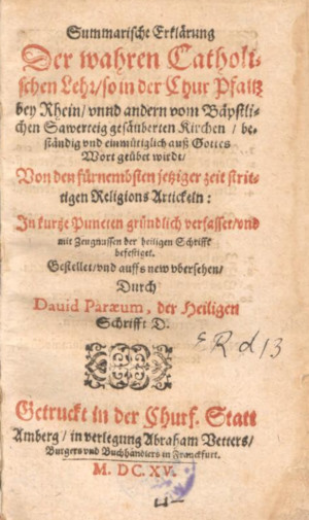 Summarische Erklärung
Der wahren Catholi-
schen Lehr/ so in der Chur Pfaltz
bey Rhein/ vnnd andern vom Bäpstli-
chen Sawerteig gesäuberten Kirchen / be-
ständig vnd einmütiglich auß Gottes
Wort geübet wirdt/
Von den fürnembsten jetziger zeit strit-
tigen Religions Artickeln:
In kurtze Puncten gründlich verfasset/ vnd
mit Zeugnussen der heiligen Schrifft
befestiget.
Gestellet/ vnd auffs new vbersehen/
Durch
Dauid Paræum, der Heiligen
Schrifft D.
E R d 13
Getruckt in der Churf. Statt
Amberg / in verlegung Abraham Vetters/
Burgers vnd Buchhändlers in Franckfurt.
M. DC. XV.